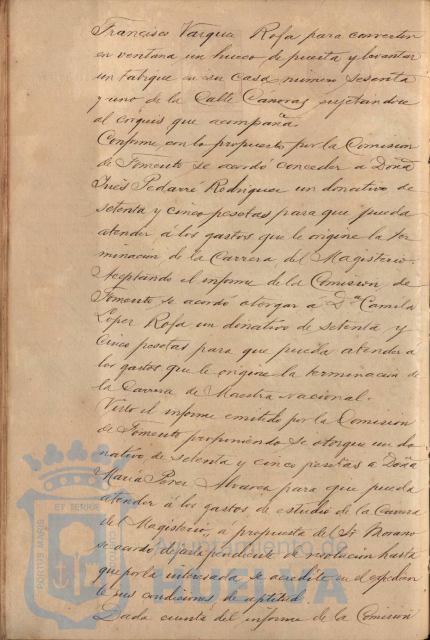 Francisco Vargas Rofa para convertir
en ventana un hueco de puerta y levantar
un tabique en su casa número sesenta
y uno de la Calle Cánovas sujetándose
al cróquis que acompaña.
Conforme con lo propuesto por la Comisión
de Fomento se acordó conceder a Doña
Inés Pedarré Rodríguez un donativo de
setenta y cinco pesetas para que pueda
atender á los gastos que le origine la ter
minación de la Carrera del Magisterio.
Aceptando el informe de la Comisión de
Fomento, se acordó otorgar á Dª Camila
López Rofa un donativo de setenta y
cinco pesetas para que pueda atender a
los gastos que le origine la terminación de
la Carrera de Maestra Nacional.
Visto el informe emitido por la Comision
de Fomento proponiendo se otorgue un do
nativo de setenta y cinco pesetas a Doña
María Perez Alvarez para que pueda
atender á los gastos de estudio de la Carrera
del Magisterio, á propuesta del Sr Morano
se acordó dejar pendiente de resolución hasta
que por la interesada se acredite en el expedien
te sus condiciones de aptitud.
Dada cuenta del informe de la Comisión
PORTUS MARIS ET TERRÆ CUSTODIA
Ayuntamiento de
HUELVA